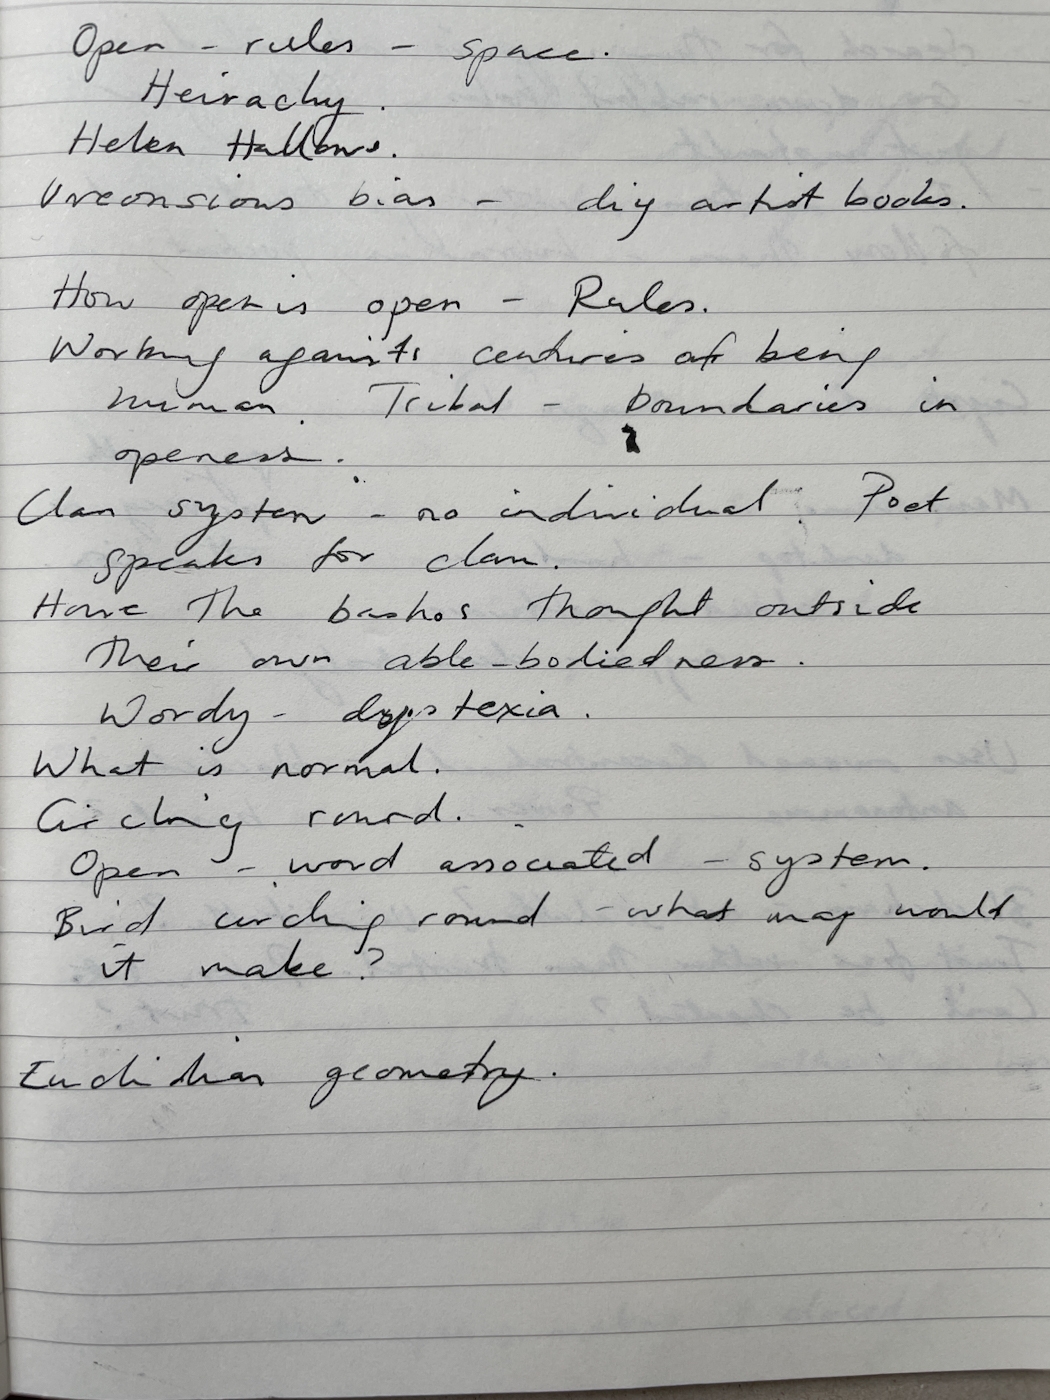 Open - rules - space.
Heirachy.
Helen Hallows.
Unconsious bias - diy artist books.
How open is open - Rules.
Working against centuries of being
human. Tribal - boundaries in
openess.
Clan system - no individual. Poet
speaks for clan.
Have the bashos thought outside
their own able-bodiedness.
Wordy - dystexia.
What is normal.
Circling round.
Open - word associated - system.
Bird circling round - what map would
it make?
Euclidian geometry.